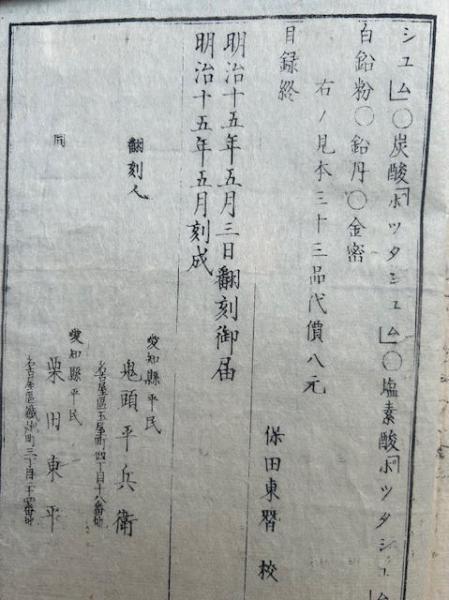 シユム」〇炭酸「ポツタシユム」〇塩素酸「ポツタシユム」
白鉛粉〇鉛丹〇金密
右ノ見本三十三品代價八元
目録終
保田東智校
明治十五年五月三日翻刻御届
明治十五年五月刻成
翻刻人
愛知縣平民
鬼頭平兵衛
名古屋區玉屋町四丁目十八番地
同
愛知縣平民
栗田東平
名古屋區町三丁目